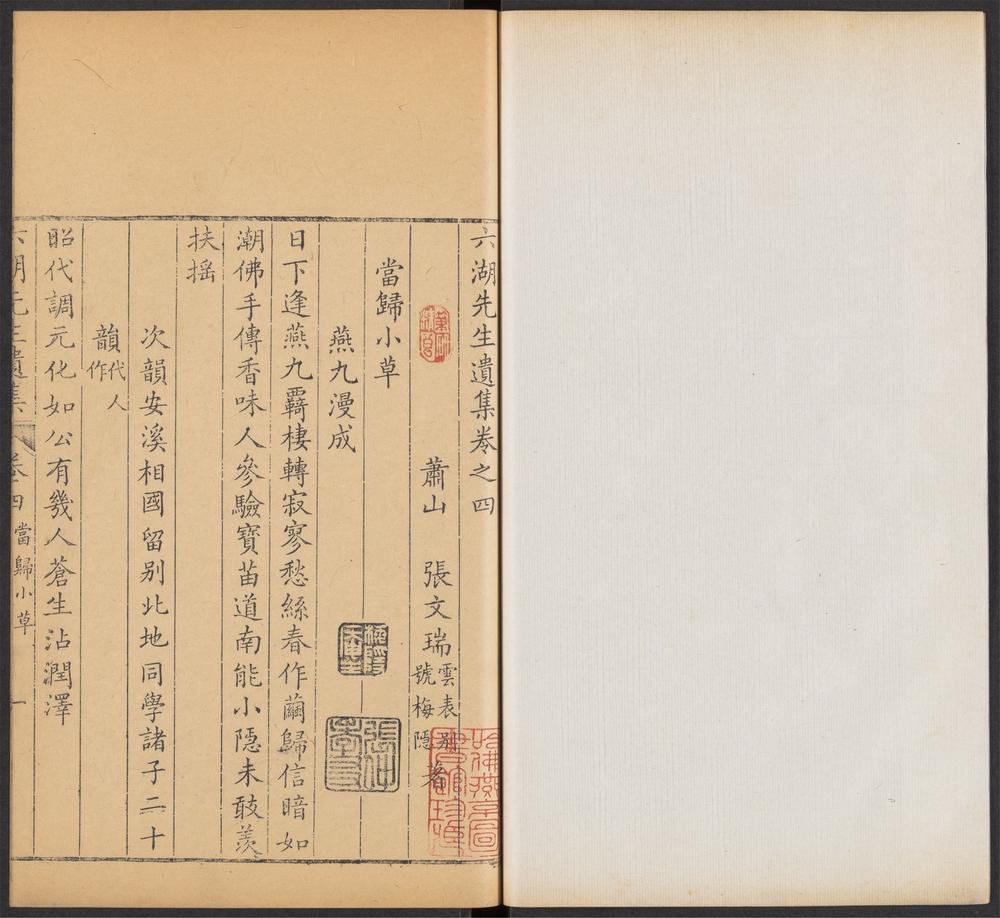 六湖先生遺集卷之四
蕭山 張文瑞雲表別號梅隱著
當歸小草
燕九漫成
日下逢燕九覊棲轉寂寥愁絲春作繭歸信暗如
潮佛手傳香味人參驗寶苗道南能小隱未敢羨
扶揺
次韻安溪相國留别北地同學諸子二十
韻代人作
昭代調元化如公有幾人蒼生沾潤澤
六湖先生遺集 卷四 當歸小草 一
哈佛燕京圖書館珍藏